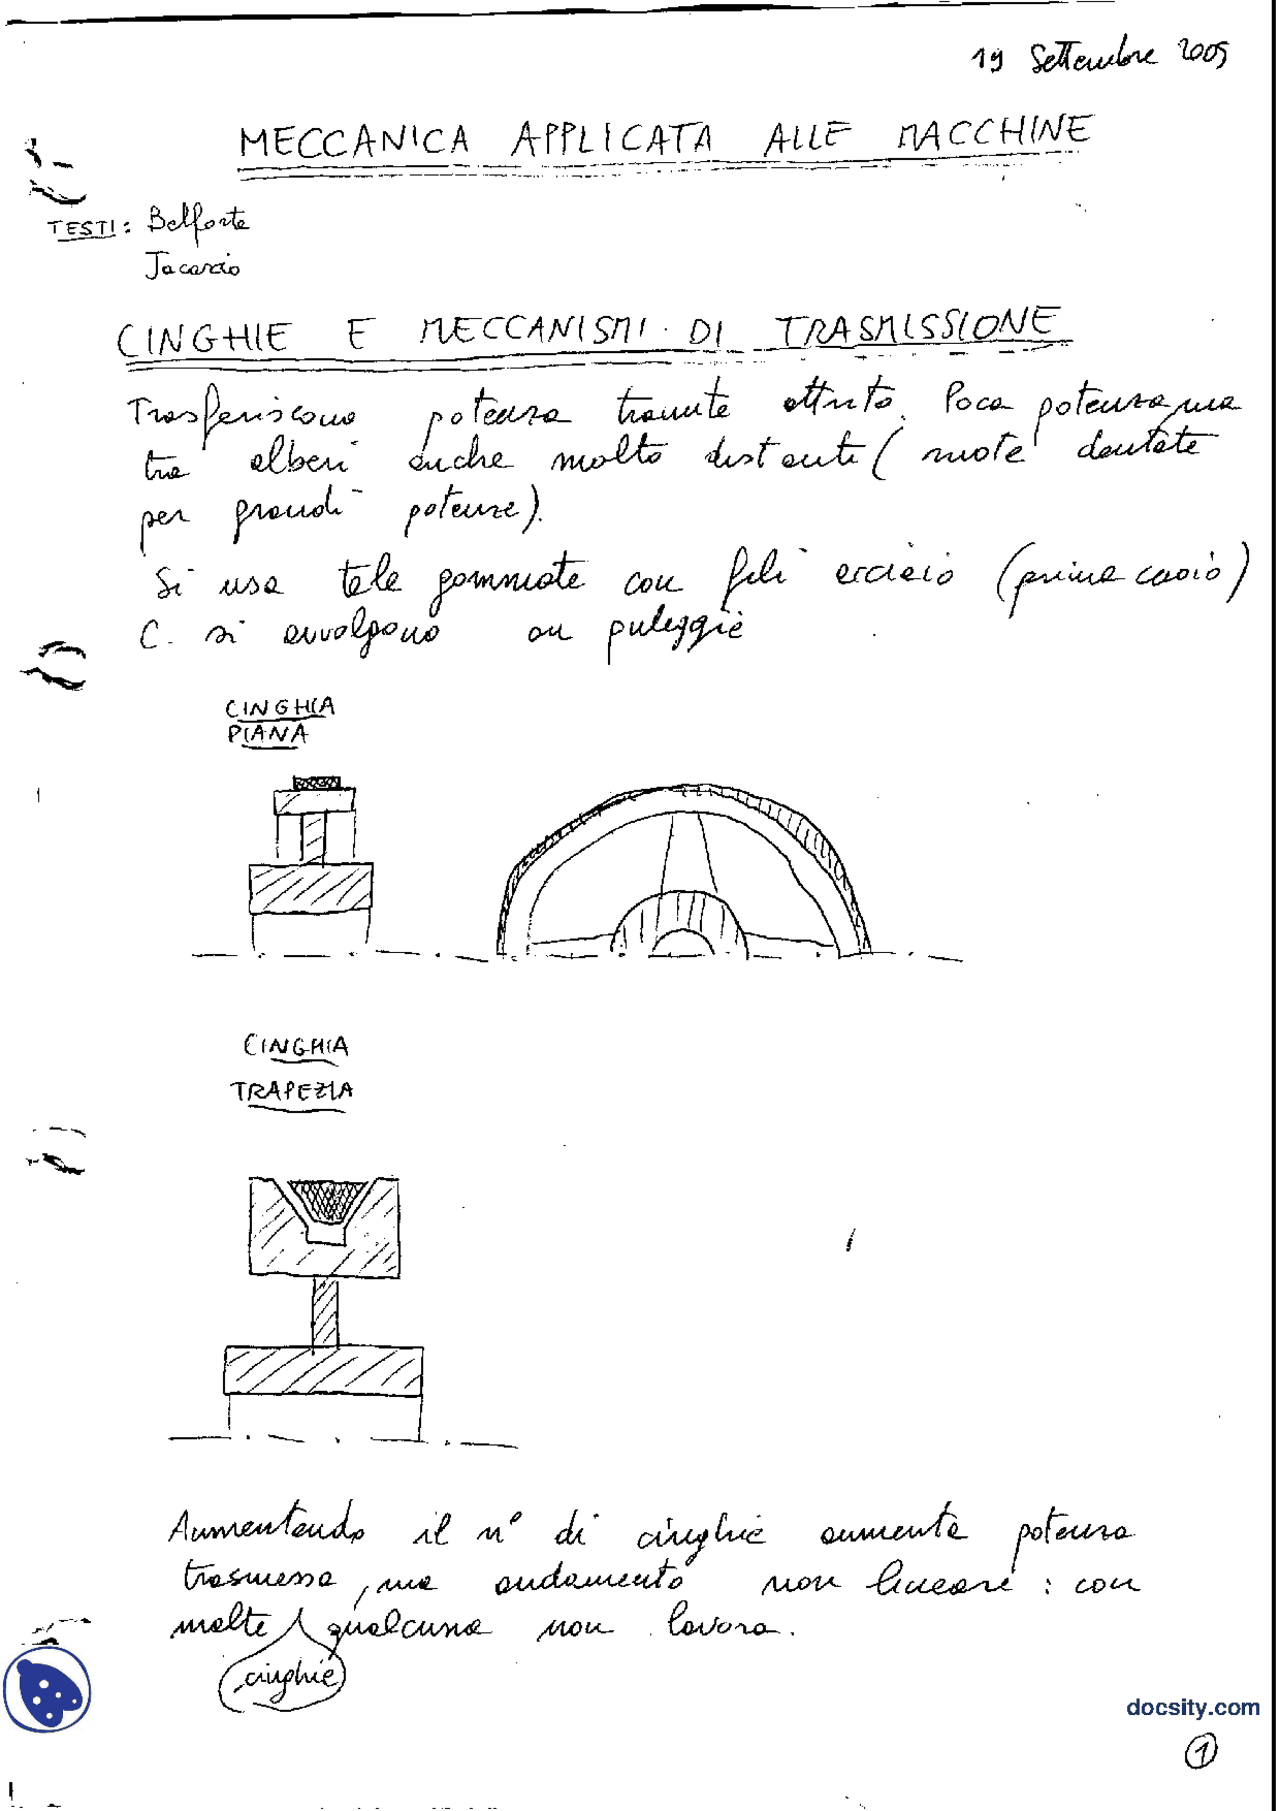 19 Settembre 2005
MECCANICA APPLICATA ALLE MACCHINE
TESTI: Belforte
Jacazio
CINGHIE E MECCANISMI DI TRASMISSIONE
Trasferiscono potenza tramite attrito. Poca potenza, ma
tra alberi anche molto distanti (ruote dentate
per grandi potenze).
Si usa tele gommate con fili acciaio (prima cuoio)
C. si avvolgono su pulegge
CINGHIA
PIANA
CINGHIA
TRAPEZIA
Aumentando il n° di cinghie aumenta potenza
trasmessa, ma andamento non lineare: con
molte cinghie qualcuna non lavora.
docsity.com
1